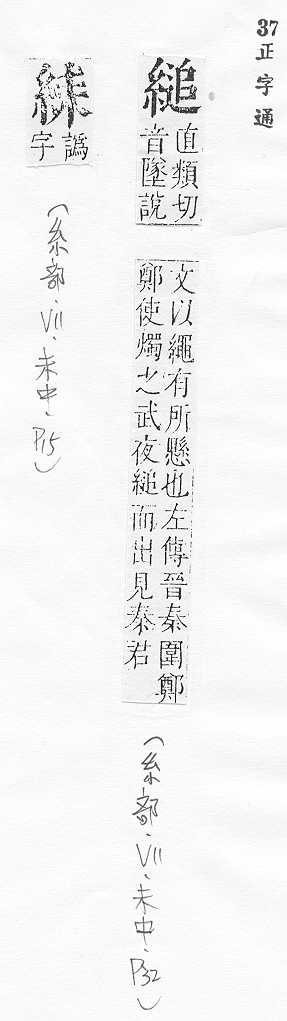 37正字通
縋
直類切
音墜說
文以繩有所懸也左傳晉秦圍鄭
鄭使燭之武夜縋而出見秦君
(糸部·VII·未中·P32)
譌
字
(糸部·VII·未中·P15)